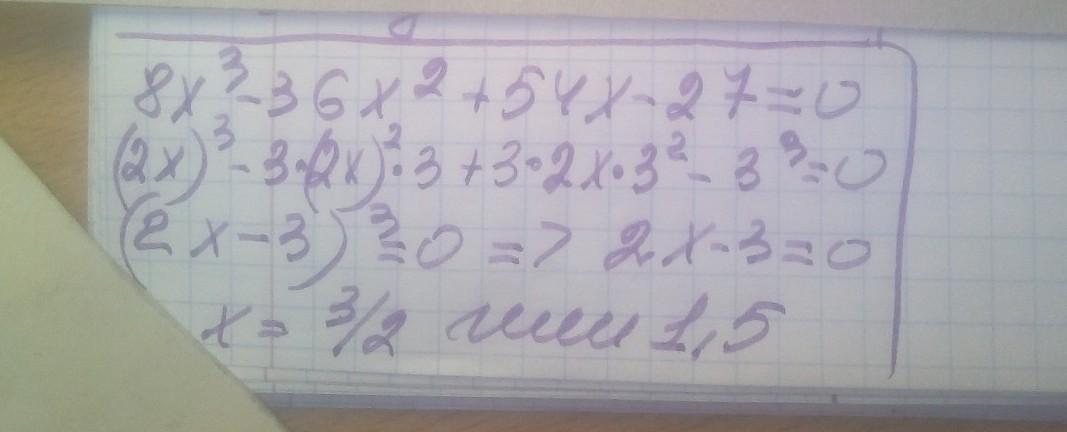 8x³-36x²+54x-27=0
(2x)³-3·(2x)²·3+3·2x·3²-3³=0
(2x-3)³=0 => 2x-3=0
x= 3/2 или 1,5